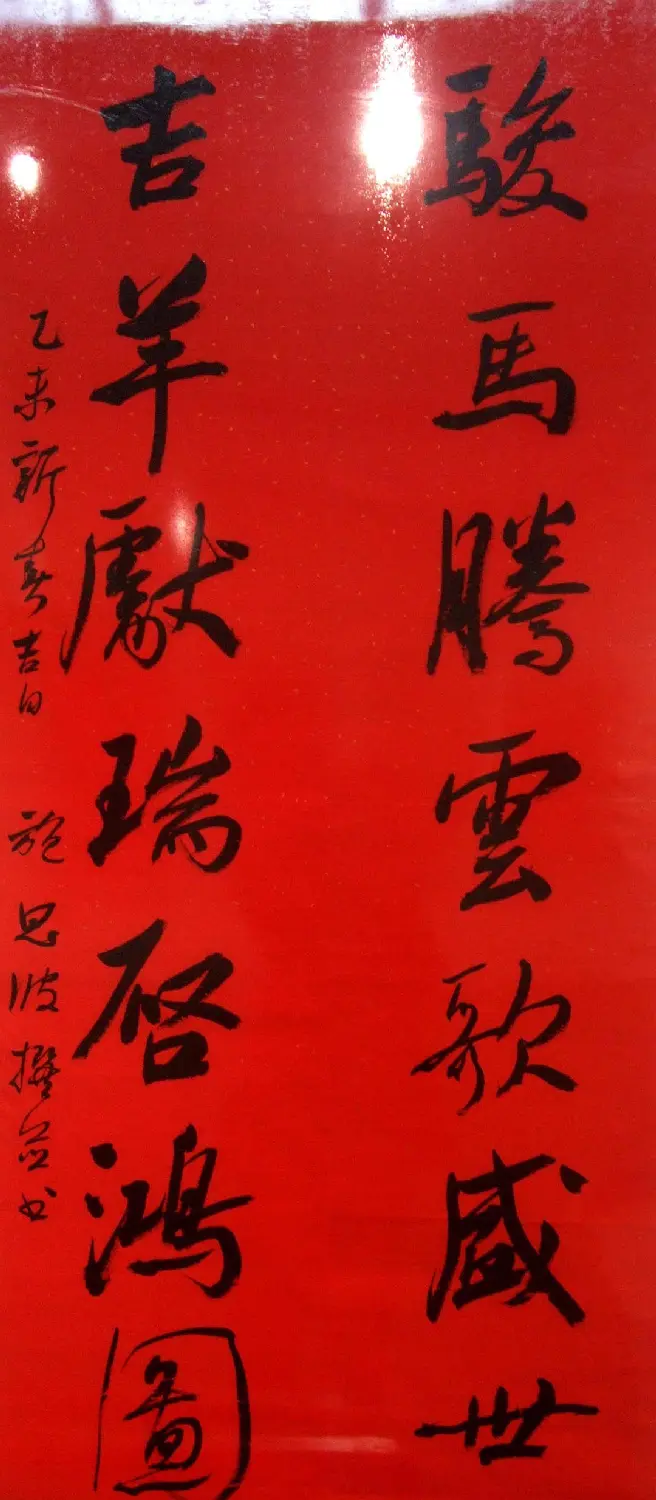 駿馬騰雲歌盛世
吉羊獻瑞啓鴻圖
乙未新春吉日 施思波撰並书